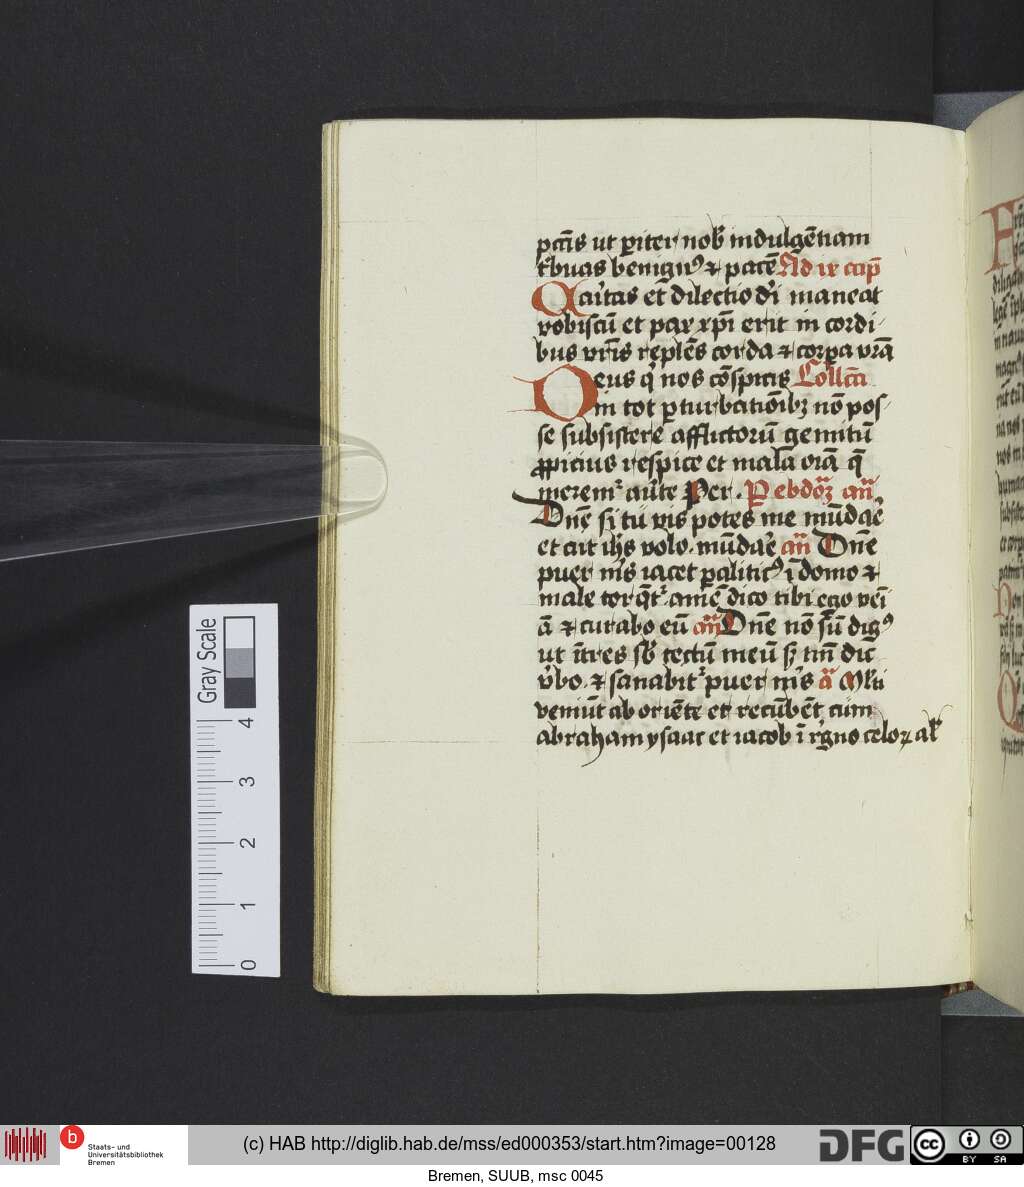 pctis ut pariter nob indulgētiam
tbuas benignꝰ ⁊ pacē Ad ix cap
Caritas et dilectio di maneat
vobiscū et pax xpi erit in cordi
bus vris replēs corda ⁊ corpa vrā
Deus q nos cōspicis Collcta
in tot pturbationibꝫ nō pos
se subsistere afflictorū gemitū
ppicius respice et mala oīa q̄
meremr aūte Per. Pebdoꝫ an
Dne si tu vis potes me mūdare
et ait ihs volo mūdare an Dne
puer ms iacet paliticꝰ ī domo ⁊
male torqtr amē dico tibi ego vei
ā ⁊ curabo eū an Dne nō sū digꝰ
ut itres sb tectū meū sꝫ tm dic
vbo ⁊ sanabitr puer ms a Mlti
veniūt ab oriēte et recūbēt cum
abraham ysaac et iacob ī rgno celoꝝ
Gray Scale
4
3
2
1
0
b
Staats- und
Universitätsbibliothek
Bremen
(c) HAB http://diglib.hab.de/mss/ed000353/start.htm?image=00128
DFG
cc
BY SA
Bremen, SUUB, msc 0045